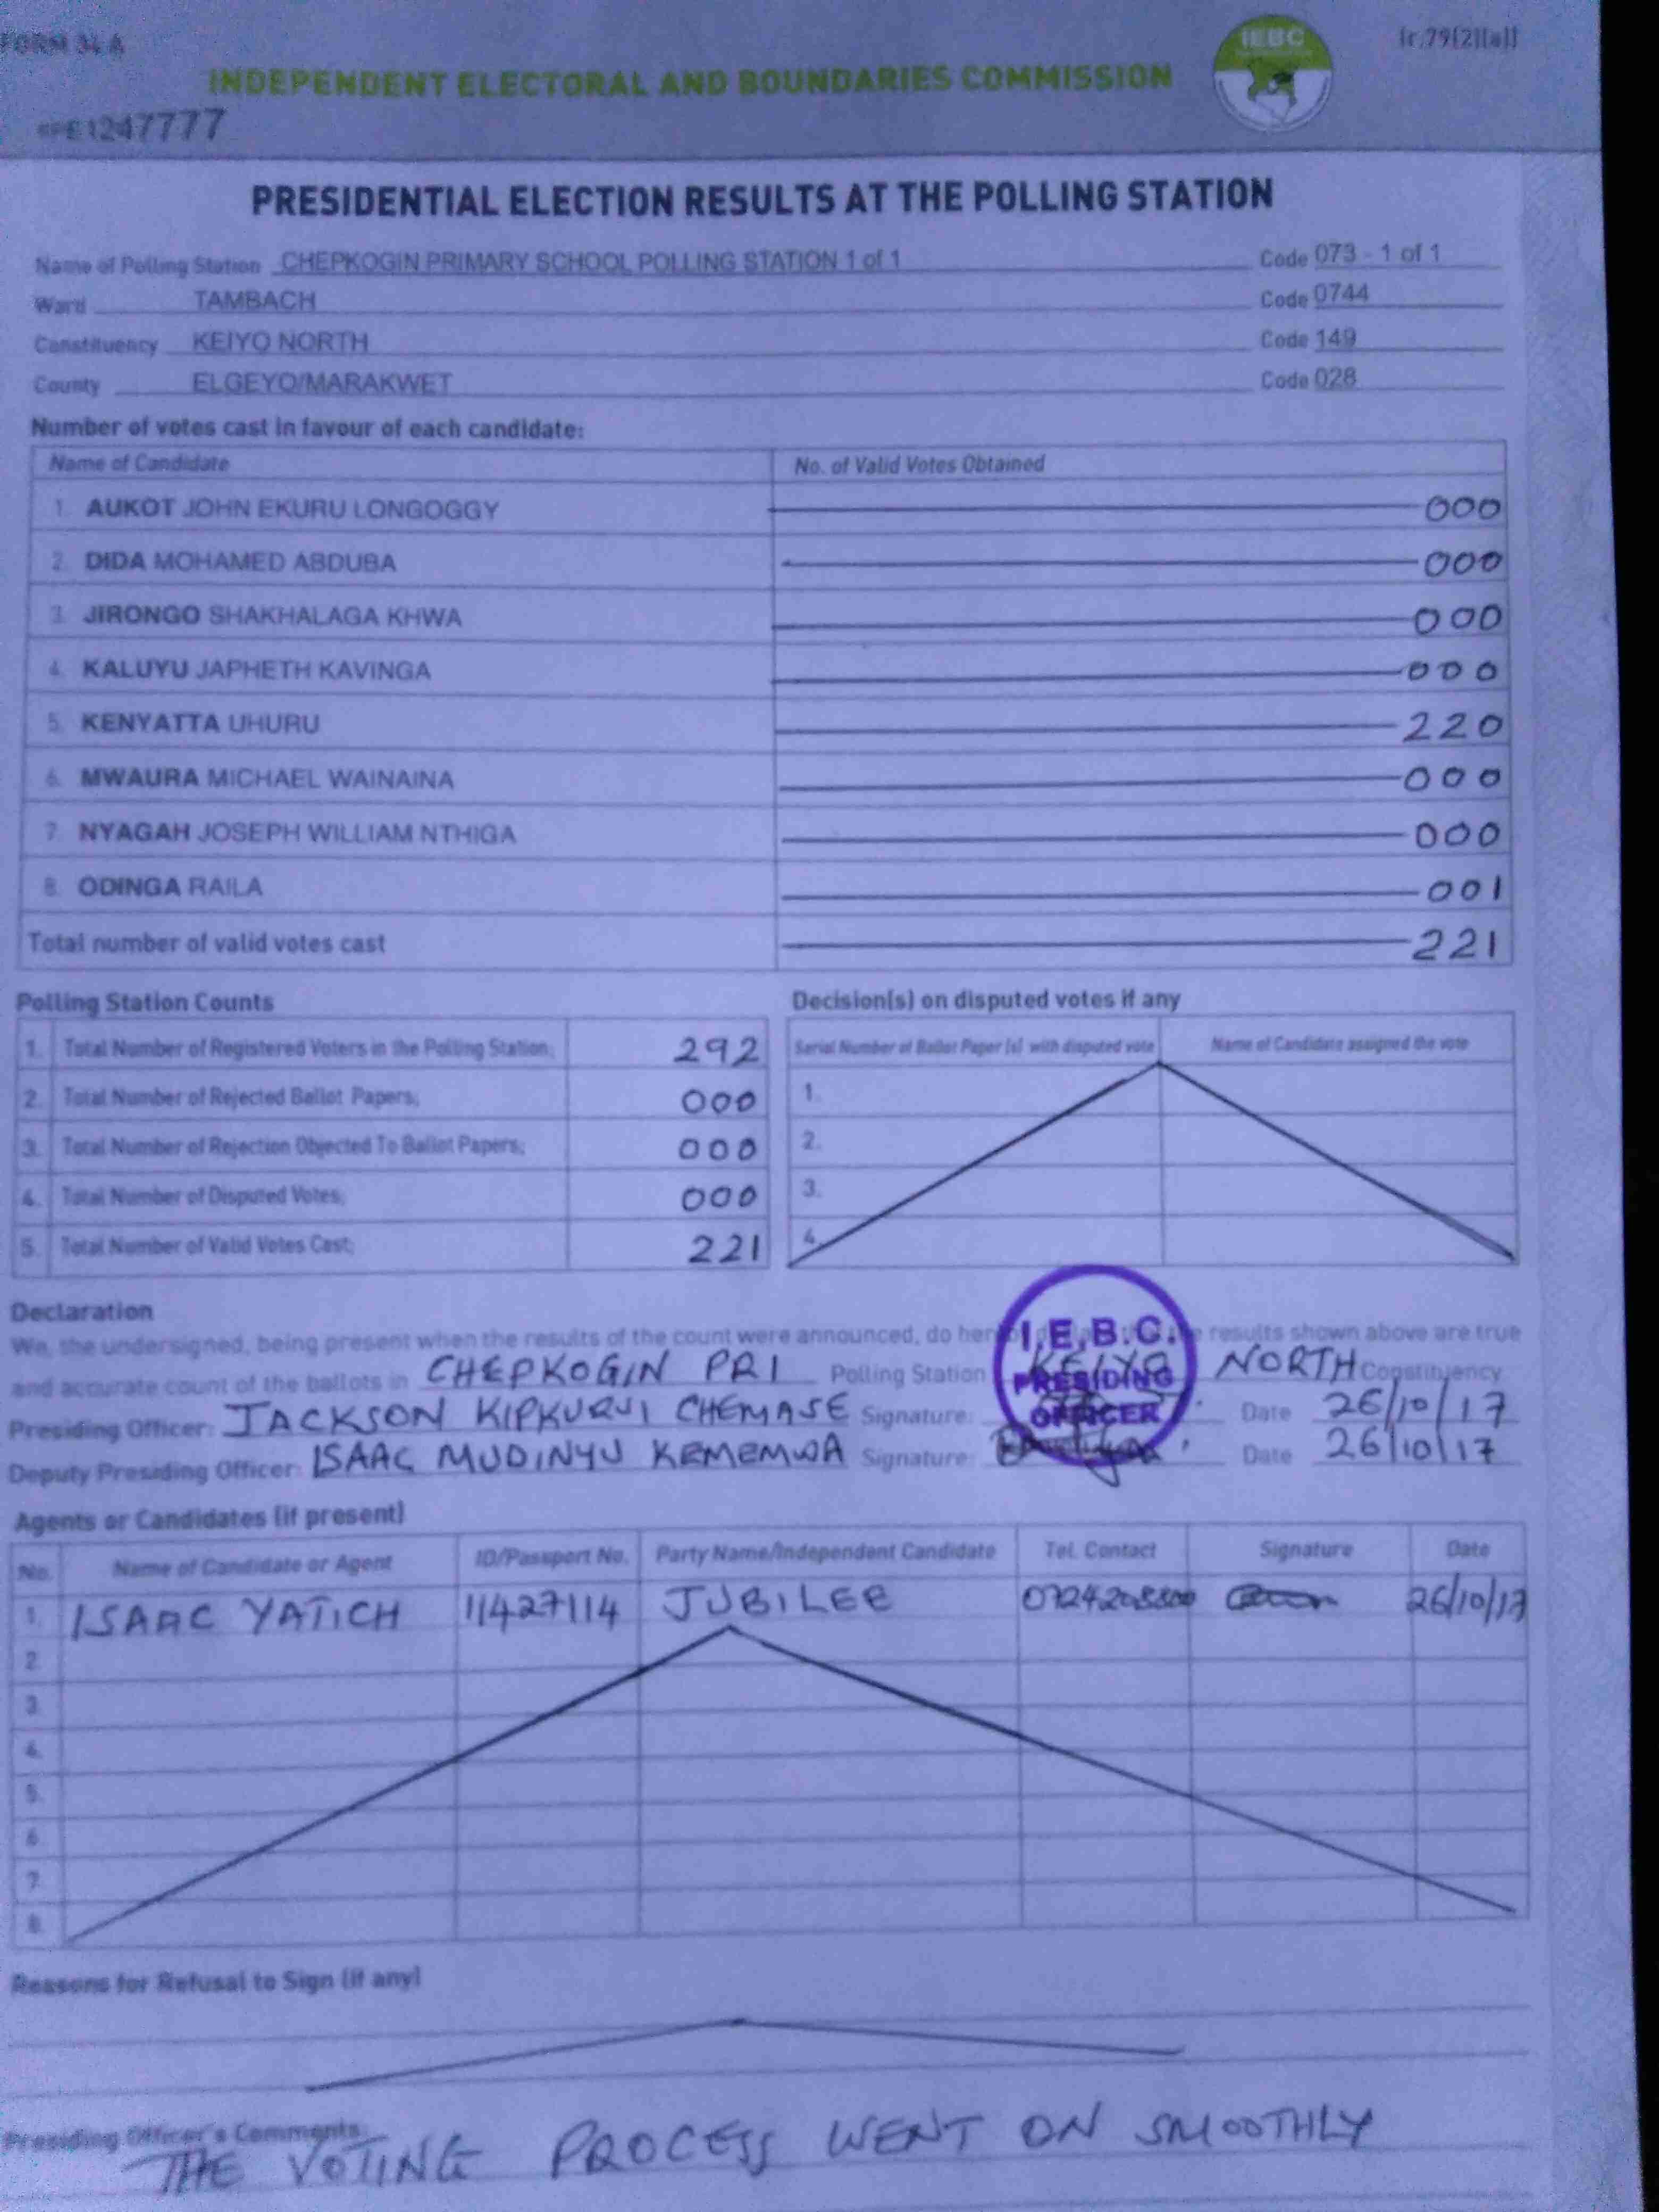 FORM 34 A
(r.79(2)(a))
IEBC
INDEPENDENT ELECTORAL AND BOUNDARIES COMMISSION
1247777
PRESIDENTIAL ELECTION RESULTS AT THE POLLING STATION
Name of Polling Station CHEPKOGIN PRIMARY SCHOOL POLLING STATION 1 of 1 Code 073 - 1 of 1
Ward TAMBACH Code 0744
Constituency KEIYO NORTH Code 149
County ELGEYO/MARAKWET Code 028
Number of votes cast in favour of each candidate:
Name of Candidate No. of Valid Votes Obtained
1. AUKOT JOHN EKURU LONGOGGY 000
2. DIDA MOHAMED ABDUBA 000
3. JIRONGO SHAKHALAGA KHWA 000
4. KALUYU JAPHETH KAVINGA 000
5. KENYATTA UHURU 220
6. MWAURA MICHAEL WAINAINA 000
7. NYAGAH JOSEPH WILLIAM NTHIGA 000
8. ODINGA RAILA 001
Total number of valid votes cast 221
Polling Station Counts
1. Total Number of Registered Voters in the Polling Station; 292
2. Total Number of Rejected Ballot Papers; 000
3. Total Number of Rejection Objected To Ballot Papers; 000
4. Total Number of Disputed Votes; 000
5. Total Number of Valid Votes Cast; 221
Decision(s) on disputed votes if any
Serial Number of Ballot Paper (s) with disputed vote Name of Candidate assigned the vote
1.
2.
3.
4.
Declaration
We, the undersigned, being present when the results of the count were announced, do results shown above are true
and accurate count of the ballots in CHEPKOGIN PRI Polling Station KEIYO NORTH Constituency
Presiding Officer: JACKSON KIPKURUI CHEMASE Signature: Date 26/10/17
Deputy Presiding Officer: ISAAC MUDINYU KEMEMWA Signature: Date 26/10/17
I.E.B.C.
PRESIDING
OFFICER
Agents or Candidates (if present)
No. Name of Candidate or Agent ID/Passport No. Party Name/Independent Candidate Tel. Contact Signature Date
1. ISAAC YATICH 11427114 JUBILEE 26/10/17
2.
3.
4.
5.
6.
7.
8.
Reasons for Refusal to Sign (if any)
Presiding Officer's Comments
THE VOTING PROCESS WENT ON SMOOTHLY